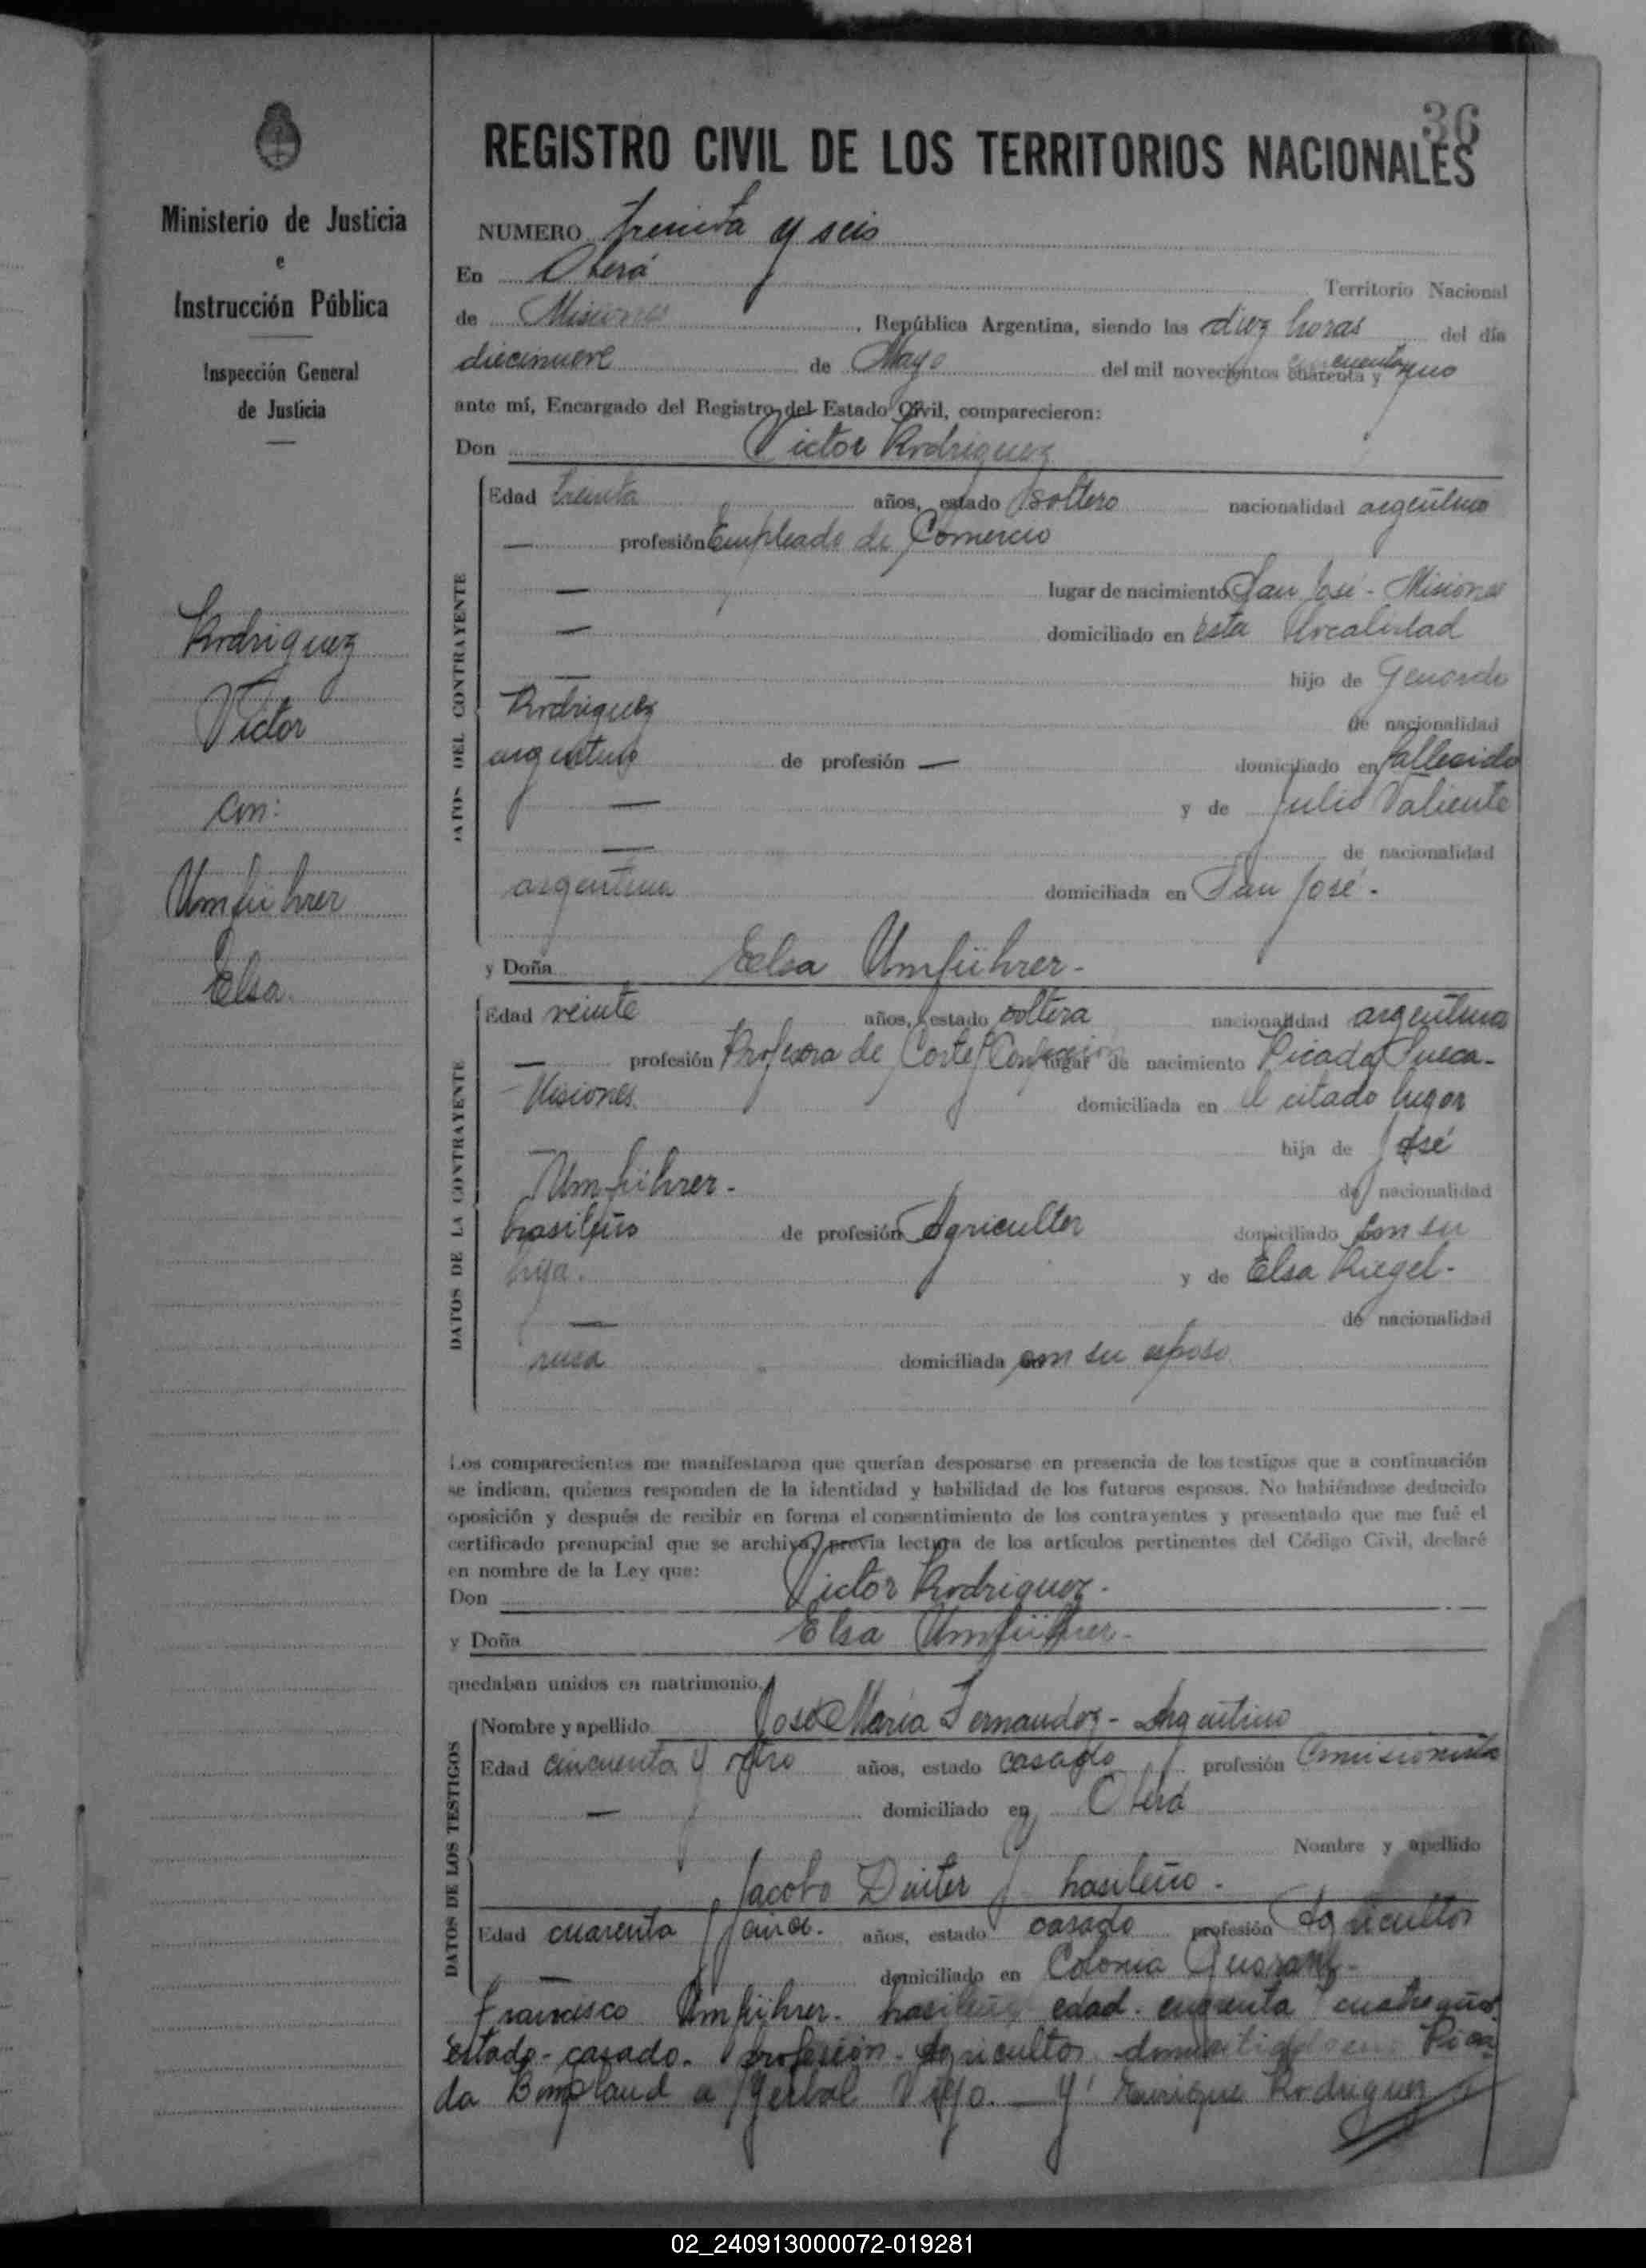 36
Ministerio de Justicia
e
Instrucción Pública
Inspección General
de Justicia
Rodriguez
Victor
con:
Umführer
Elsa.
REGISTRO CIVIL DE LOS TERRITORIOS NACIONALES
NUMERO treinta y seis
En Oberá Territorio Nacional
de Misiones, República Argentina, siendo las diez horas del día
diecinueve de Mayo del mil novecientos cuarenta y cincuenta y uno
ante mí, Encargado del Registro del Estado Civil, comparecieron:
Don Victor Rodriguez
DATOS DEL CONTRAYENTE
Edad treinta años, estado soltero nacionalidad argentino
— profesión Empleado de Comercio
— lugar de nacimiento San José - Misiones
— domiciliado en esta localidad
— hijo de Genardo
Rodriguez de nacionalidad
argentino de profesión — domiciliado en fallecido
— y de Julia Valiente
— de nacionalidad
argentina domiciliada en San José.
y Doña Elsa Umführer-
DATOS DE LA CONTRAYENTE
Edad veinte años, estado soltera nacionalidad argentina
— profesión Profesora de Corte y Confección lugar de nacimiento Picada Sueca-
- Misiones. domiciliada en el citado lugar
— hija de José
Umführer- de nacionalidad
brasileño de profesión Agricultor domiciliado con su
hija. y de Elsa Riegel-
— de nacionalidad
rusa domiciliada con su esposo
Los comparecientes me manifestaron que querían desposarse en presencia de los testigos que a continuación
se indican, quienes responden de la identidad y habilidad de los futuros esposos. No habiéndose deducido
oposición y después de recibir en forma el consentimiento de los contrayentes y presentado que me fué el
certificado prenupcial que se archiva, previa lectura de los artículos pertinentes del Código Civil, declaré
en nombre de la Ley que:
Don Victor Rodriguez-
y Doña Elsa Umführer-
quedaban unidos en matrimonio.
DATOS DE LOS TESTIGOS
Nombre y apellido José María Fernandez - Argentino
Edad cincuenta y ocho años, estado casado profesión Comisionista
— domiciliado en Oberá
Nombre y apellido
Jacobo brasileño-
Edad cuarenta y cinco. años, estado casado profesión Agricultor
— domiciliado en Colonia Guaraní-
Francisco Umführer- brasileño edad- cuarenta y cuatro años
estado- casado- profesión- Agricultor domiciliado en Pica
da Bompland a Yerbal Viejo. — y Enrique Rodriguez
02_240913000072-019281